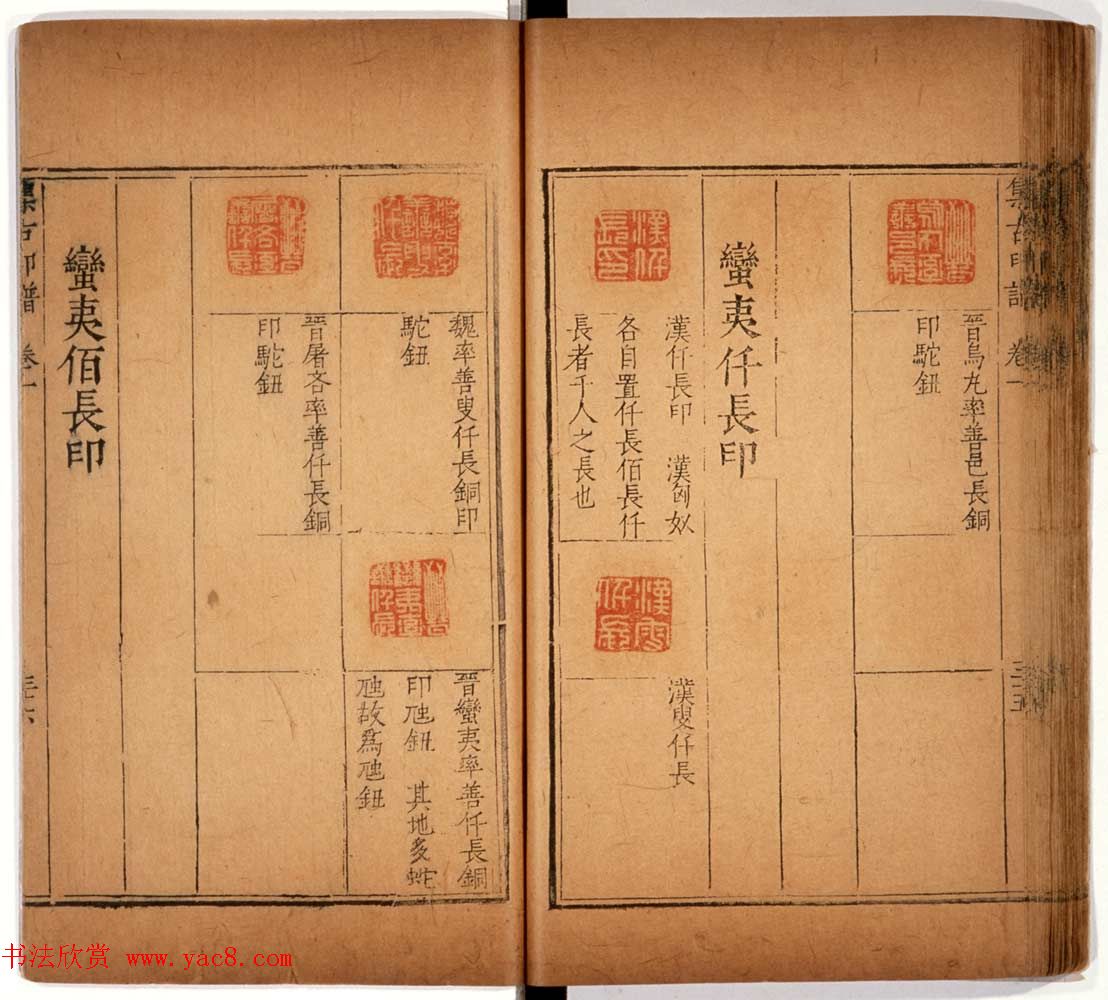 集古印譜 卷一
三十五
晉烏丸率善邑長銅
印駝鈕
蠻夷仟長印
漢仟長印
漢仟長印 漢匈奴
各自置仟長佰長仟
長者千人之長也
漢叟仟長
漢叟仟長
魏率善叟仟長銅印
駝鈕
晉蠻夷率善仟長銅
印虵鈕 其地多蛇
虵故爲虵鈕
晉屠各率善仟長銅
印駝鈕
蠻夷佰長印
集古印譜 卷一
三十六
书法欣赏 www.yac8.com